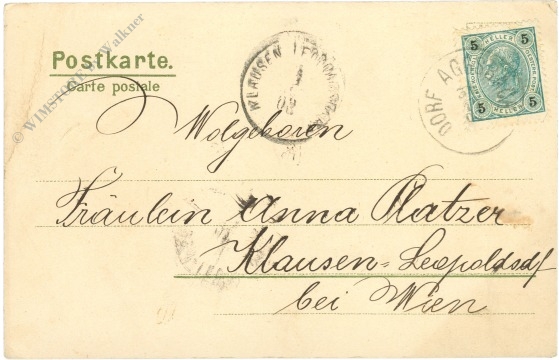 Postkarte.
Carte postale
© WIMSTORE E. Walkner
KLAUSEN LEOPOLDSDORF
02
DORF AG
5 5
HELLER
5 5
HELLER
Wolgeboren
Fräulein Anna Platzer
Klausen-Leopoldsdf
bei Wien